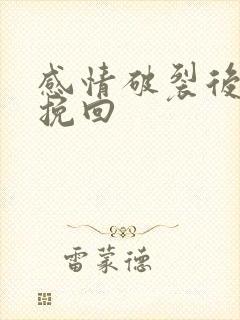 感情破裂後
挽回
雷蒙德